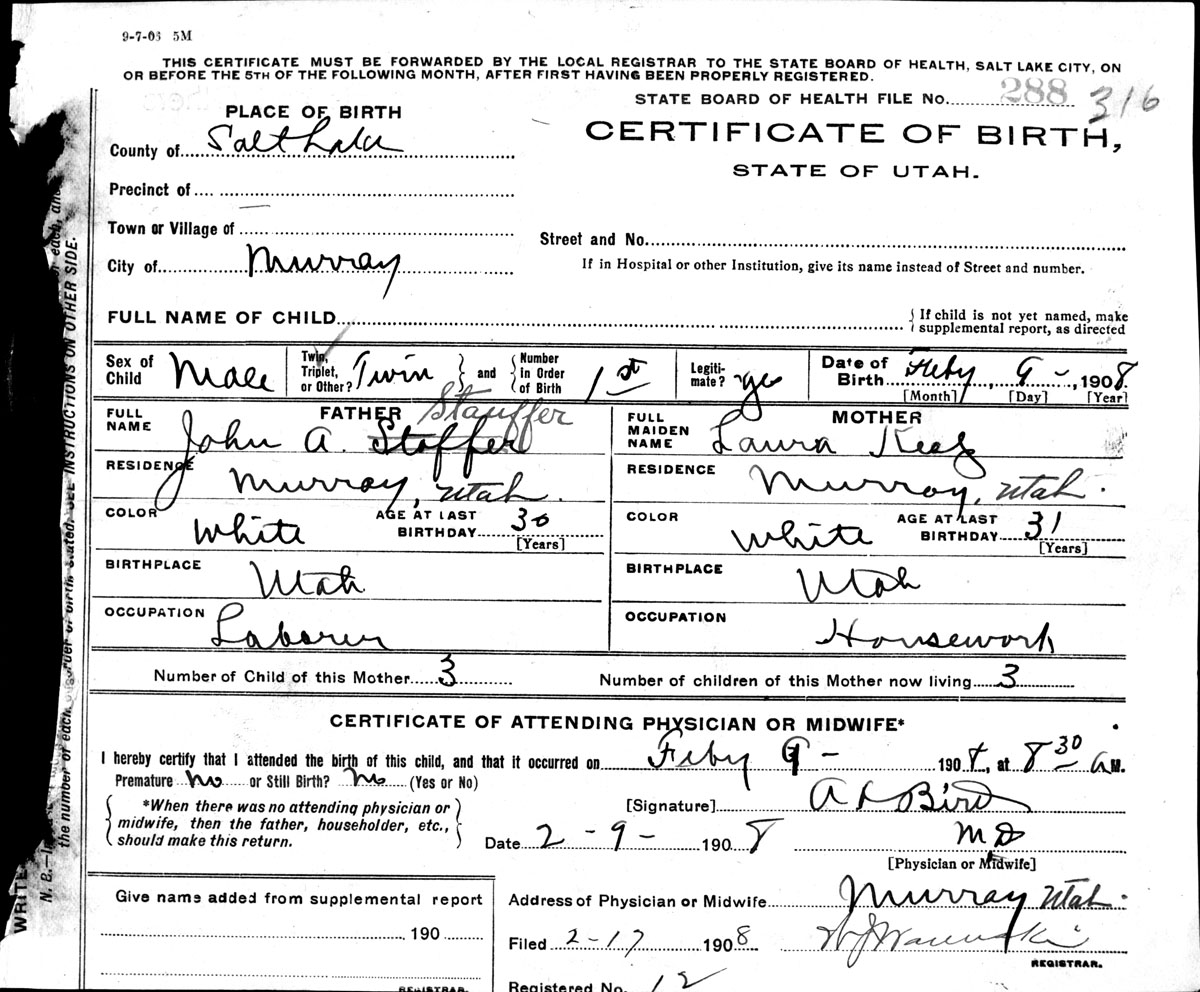 9-7-06 5M
THIS CERTIFICATE MUST BE FORWARDED BY THE LOCAL REGISTRAR TO THE STATE BOARD OF HEALTH, SALT LAKE CITY, ON
OR BEFORE THE 5TH OF THE FOLLOWING MONTH, AFTER FIRST HAVING BEEN PROPERLY REGISTERED.
STATE BOARD OF HEALTH FILE No. 288 316
PLACE OF BIRTH
CERTIFICATE OF BIRTH,
STATE OF UTAH.
County of Salt Lake
Precinct of
Town or Village of
Street and No.
City of Murray
If in Hospital or other Institution, give its name instead of Street and number.
FULL NAME OF CHILD
{ If child is not yet named, make
supplemental report, as directed
Sex of Child Male
Twin, Triplet, or Other? Twin } and { Number in Order of Birth 1st
Legiti-mate? yes
Date of Birth Feby, 9 -, 1908
[Month] [Day] [Year]
FATHER
FULL NAME John A. Stoffer Stauffer
RESIDENCE Murray, Utah.
COLOR White AGE AT LAST BIRTHDAY 30 [Years]
BIRTHPLACE Utah
OCCUPATION Laborer
MOTHER
FULL MAIDEN NAME Laura
RESIDENCE Murray, Utah.
COLOR White AGE AT LAST BIRTHDAY 31 [Years]
BIRTHPLACE Utah
OCCUPATION Housework
Number of Child of this Mother 3 Number of children of this Mother now living 3
CERTIFICATE OF ATTENDING PHYSICIAN OR MIDWIFE*
I hereby certify that I attended the birth of this child, and that it occurred on Feby 9 - 1908, at 8 30 a M.
Premature No or Still Birth? No (Yes or No)
{ *When there was no attending physician or
midwife, then the father, householder, etc.,
should make this return. }
[Signature] Bird
Date 2 - 9 - 1908 M D
[Physician or Midwife]
Give name added from supplemental report
190
REGISTRAR
Address of Physician or Midwife Murray Utah.
Filed 2-17 1908
REGISTRAR.
Registered No. 12
WRITE
N. B.—I
the number of each
SEE INSTRUCTIONS ON OTHER SIDE.